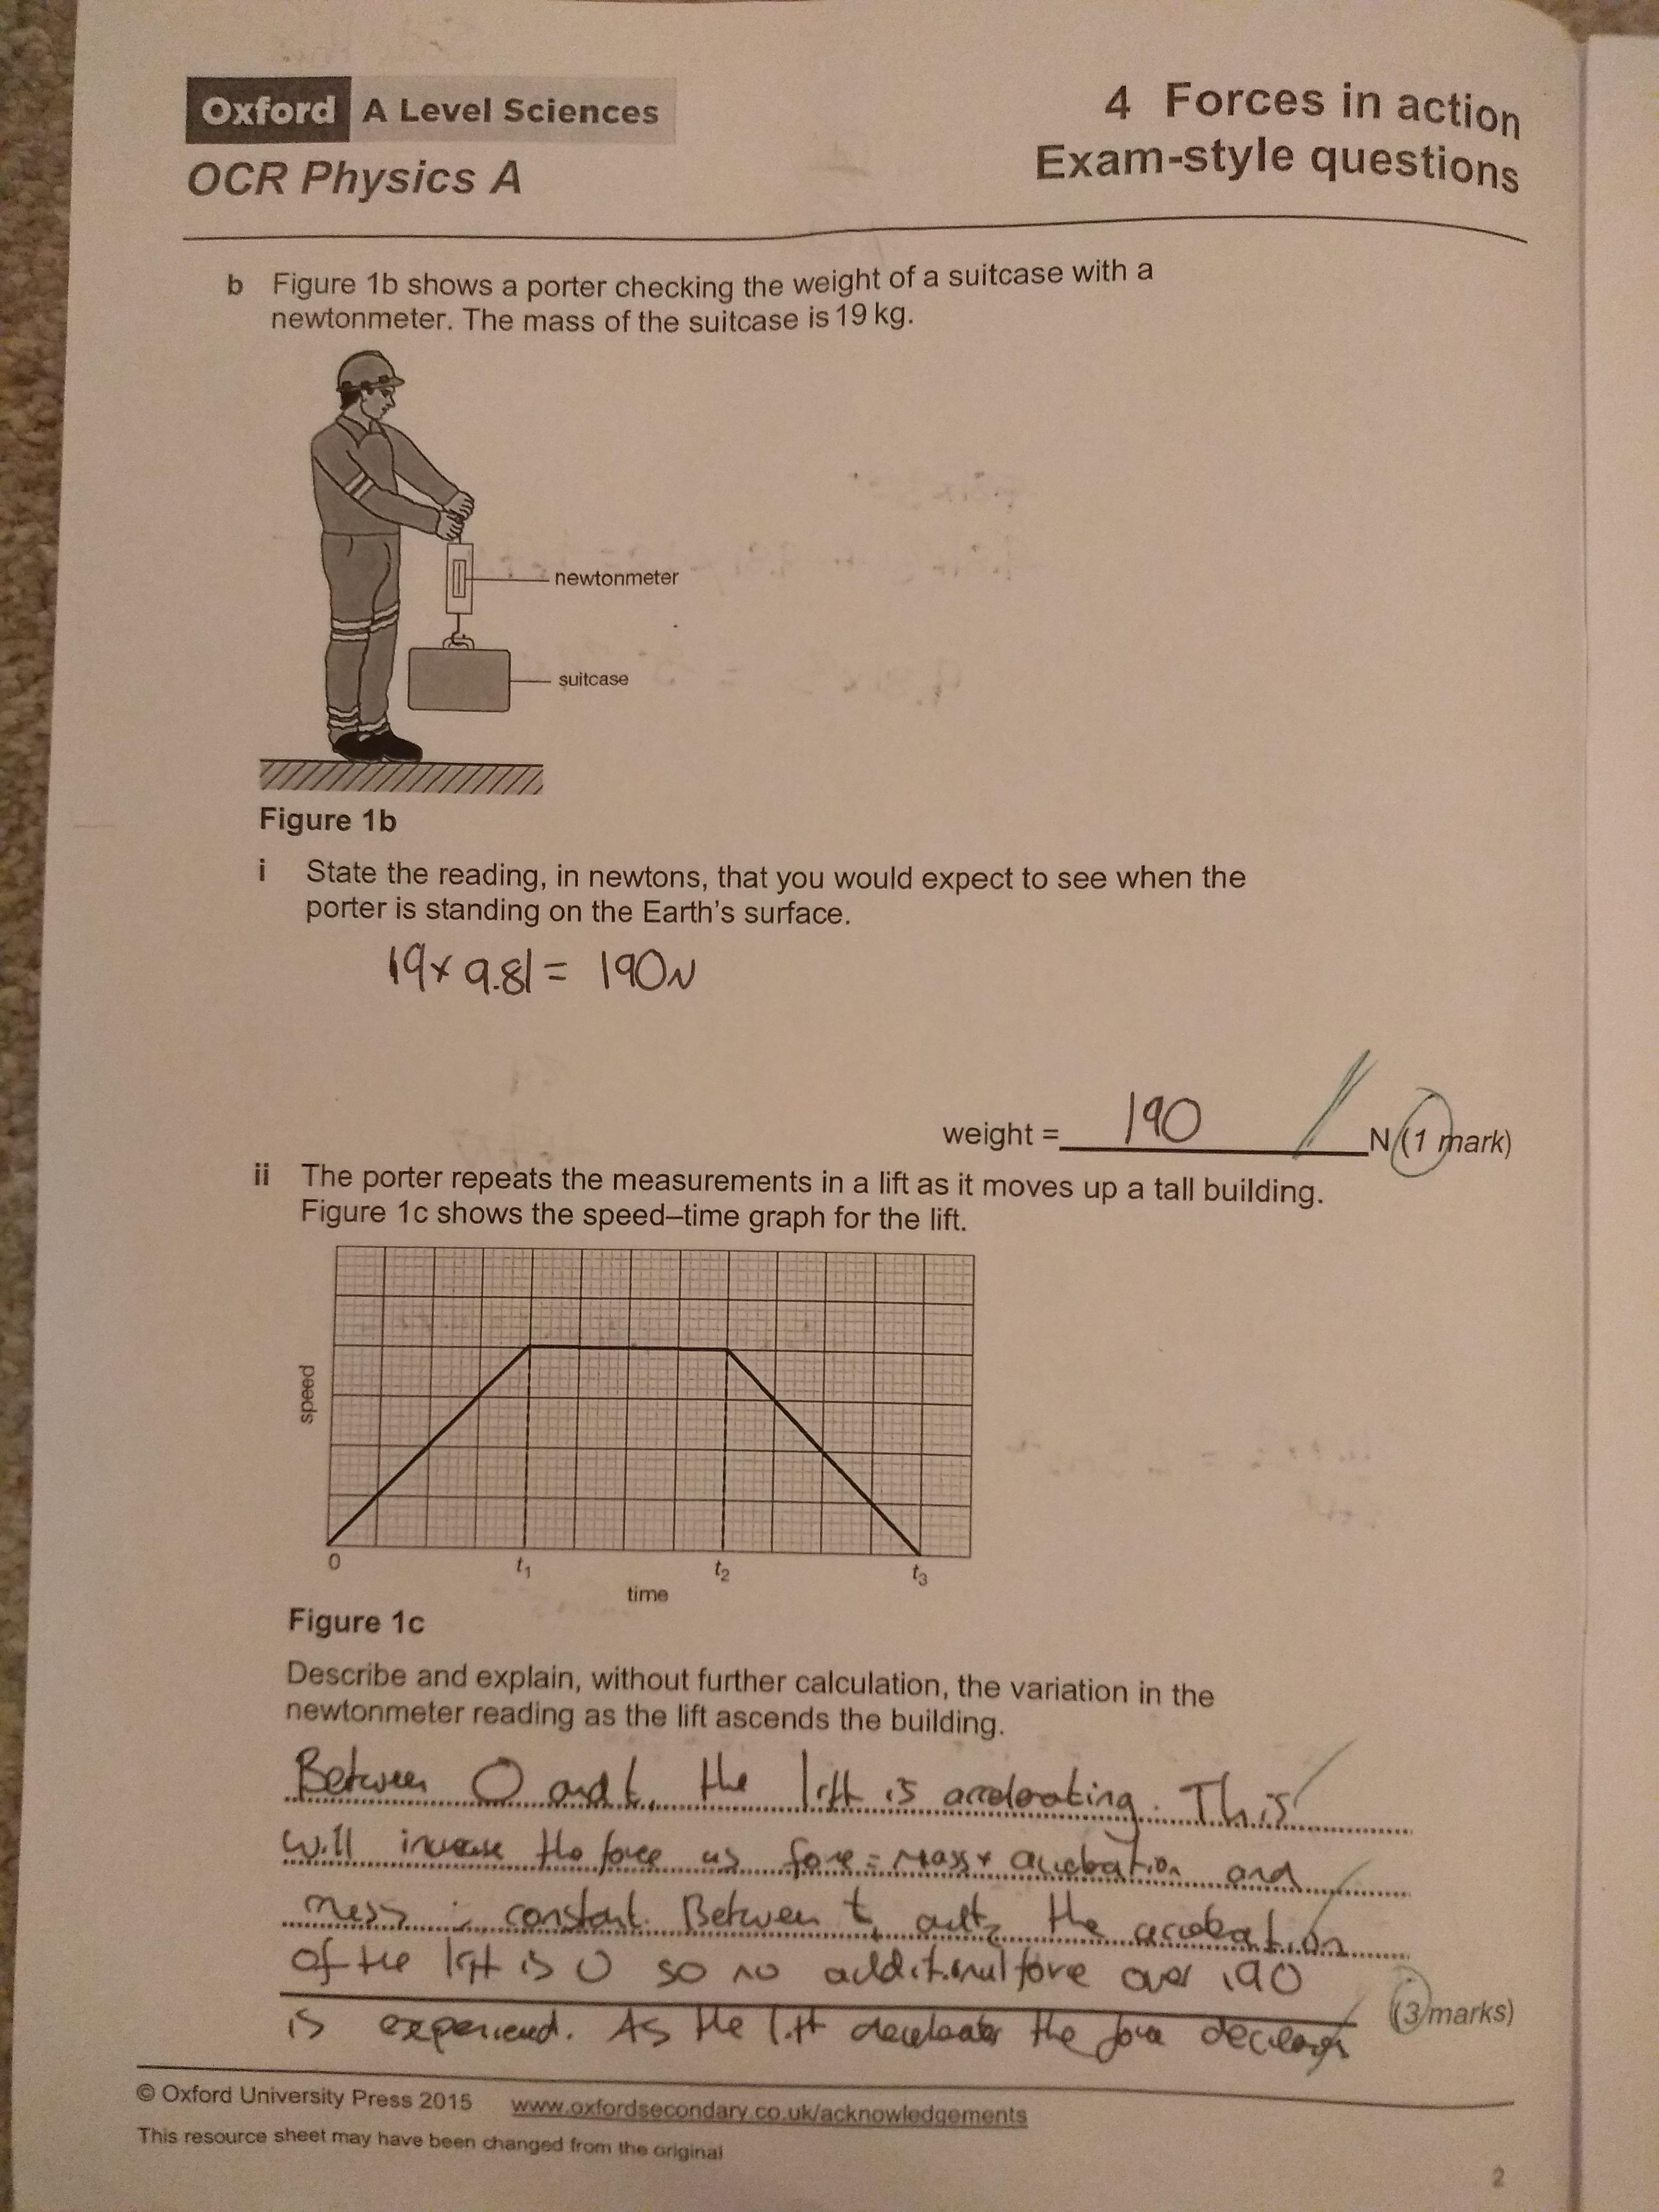 Oxford A Level Sciences
OCR Physics A
4 Forces in action
Exam-style questions
b Figure 1b shows a porter checking the weight of a suitcase with a
newtonmeter. The mass of the suitcase is 19 kg.
newtonmeter
suitcase
Figure 1b
i State the reading, in newtons, that you would expect to see when the
porter is standing on the Earth's surface.
19 x 9.81 = 190N
weight = 190 N (1 mark)
ii The porter repeats the measurements in a lift as it moves up a tall building.
Figure 1c shows the speed–time graph for the lift.
speed
0 t1 t2 t3
time
Figure 1c
Describe and explain, without further calculation, the variation in the
newtonmeter reading as the lift ascends the building.
Between 0 and t1 the lift is accelerating. This
will increase the force as force = Mass x acceleration and
mass is constant. Between t1 and t2 the acceleration
of the lift is 0 so no additional force over 190
(3 marks)
is experienced. As the lift decelerates the force decreases
© Oxford University Press 2015 www.oxfordsecondary.co.uk/acknowledgements
This resource sheet may have been changed from the original
2